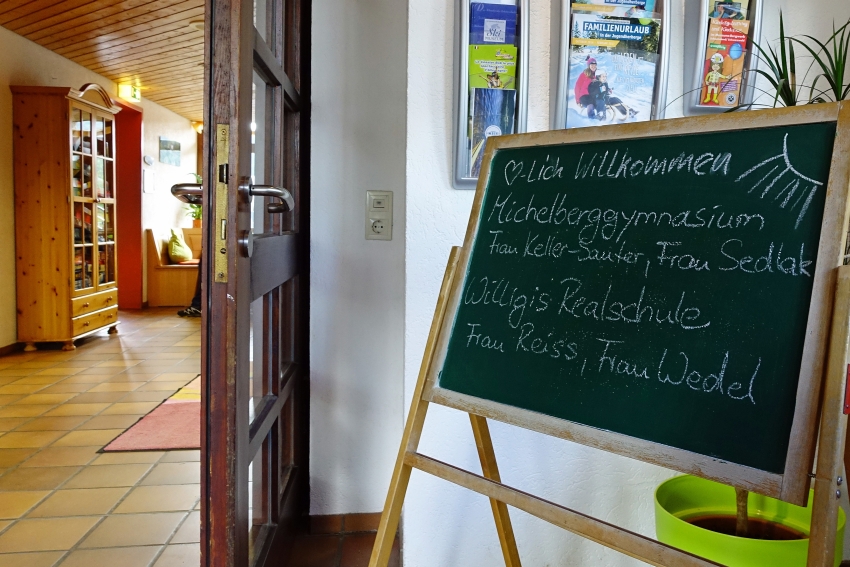 FAMILIENURLAUB
in der Jugendherberge
♡-Lich Willkommen
Michelberggymnasium
Frau Keller-Sauter, Frau Sedlak
Willigis Realschule
Frau Reiss, Frau Wedel